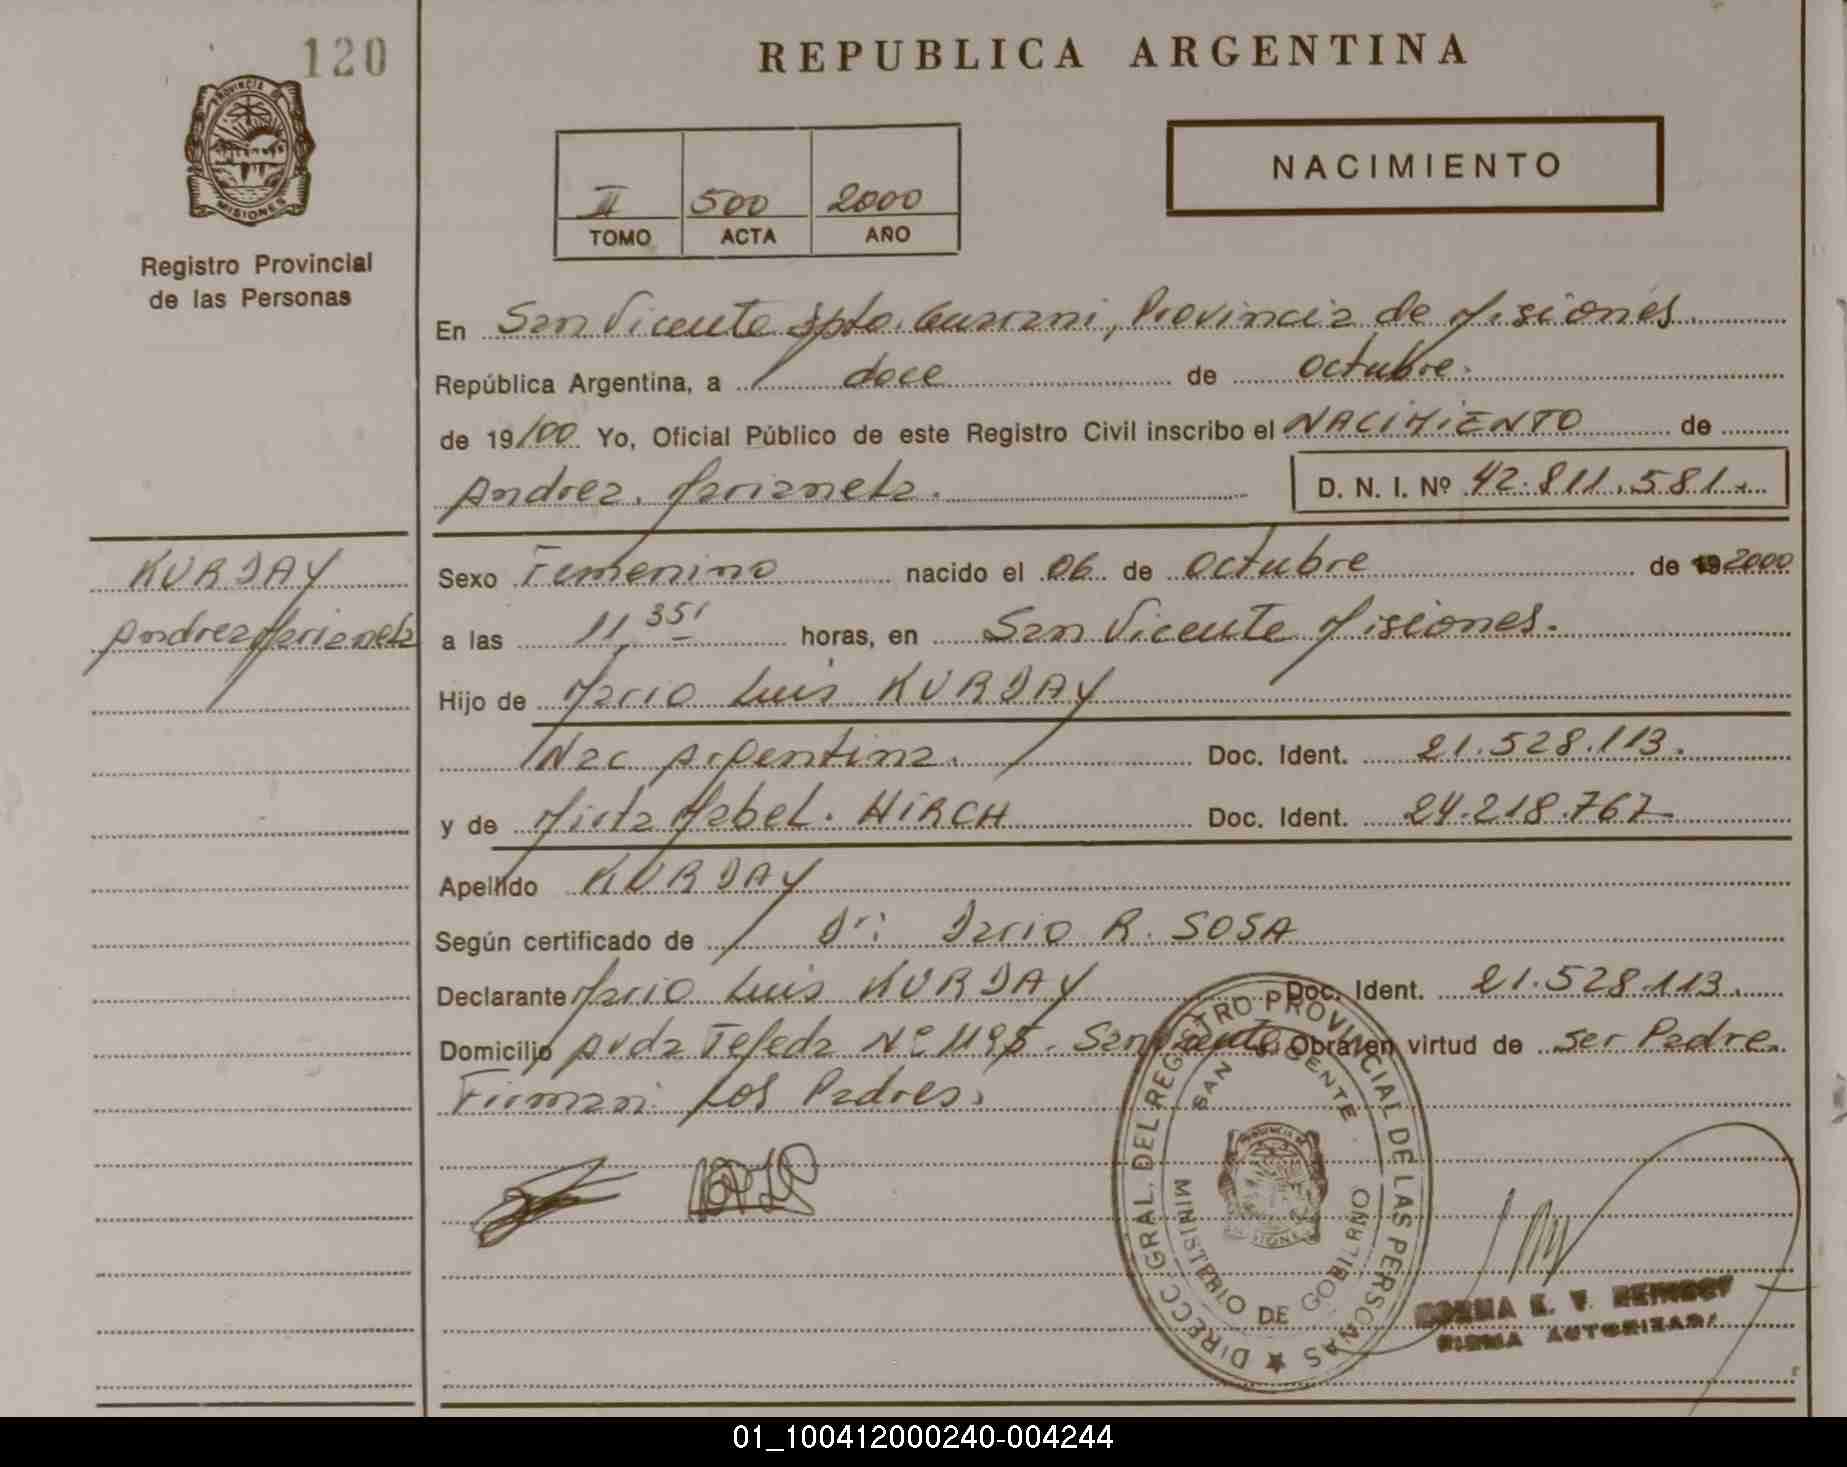 120
PROVINCIA DE
MISIONES
Registro Provincial
de las Personas
REPUBLICA ARGENTINA
II 500 2000
TOMO ACTA AÑO
NACIMIENTO
En San Vicente Dpto. Guarani, Provincia de Misiones.
República Argentina, a doce de octubre.
de 19/00 Yo, Oficial Público de este Registro Civil inscribo el NACIMIENTO de
Andrea. Marianela. D. N. I. Nº 42.811.581.-
KURDAY
Andrea Marianela
Sexo Femenino nacido el 06 de octubre de 19 2000
a las 11,35' horas, en San Vicente Misiones.
Hijo de Mario Luis KURDAY
Nac Argentina. Doc. Ident. 21.528.113.
y de Mirta Mabel. HiRCH Doc. Ident. 24.218.767
Apellido KURDAY
Según certificado de Dr: Dario R. SOSA
Declarante Mario Luis KURDAY Doc. Ident. 21.528.113.
Domicilio Avda Tejeda Nº 1195. San Vicente. Obra en virtud de ser Padre.
Firman: Los Padres.
DIRECC. GRAL. DEL REGISTRO PROVINCIAL DE LAS PERSONAS
SAN VICENTE
MINISTERIO DE GOBIERNO
PROVINCIA DE
MISIONES
NORMA E. V.
FIRMA AUTORIZADA
01_100412000240-004244